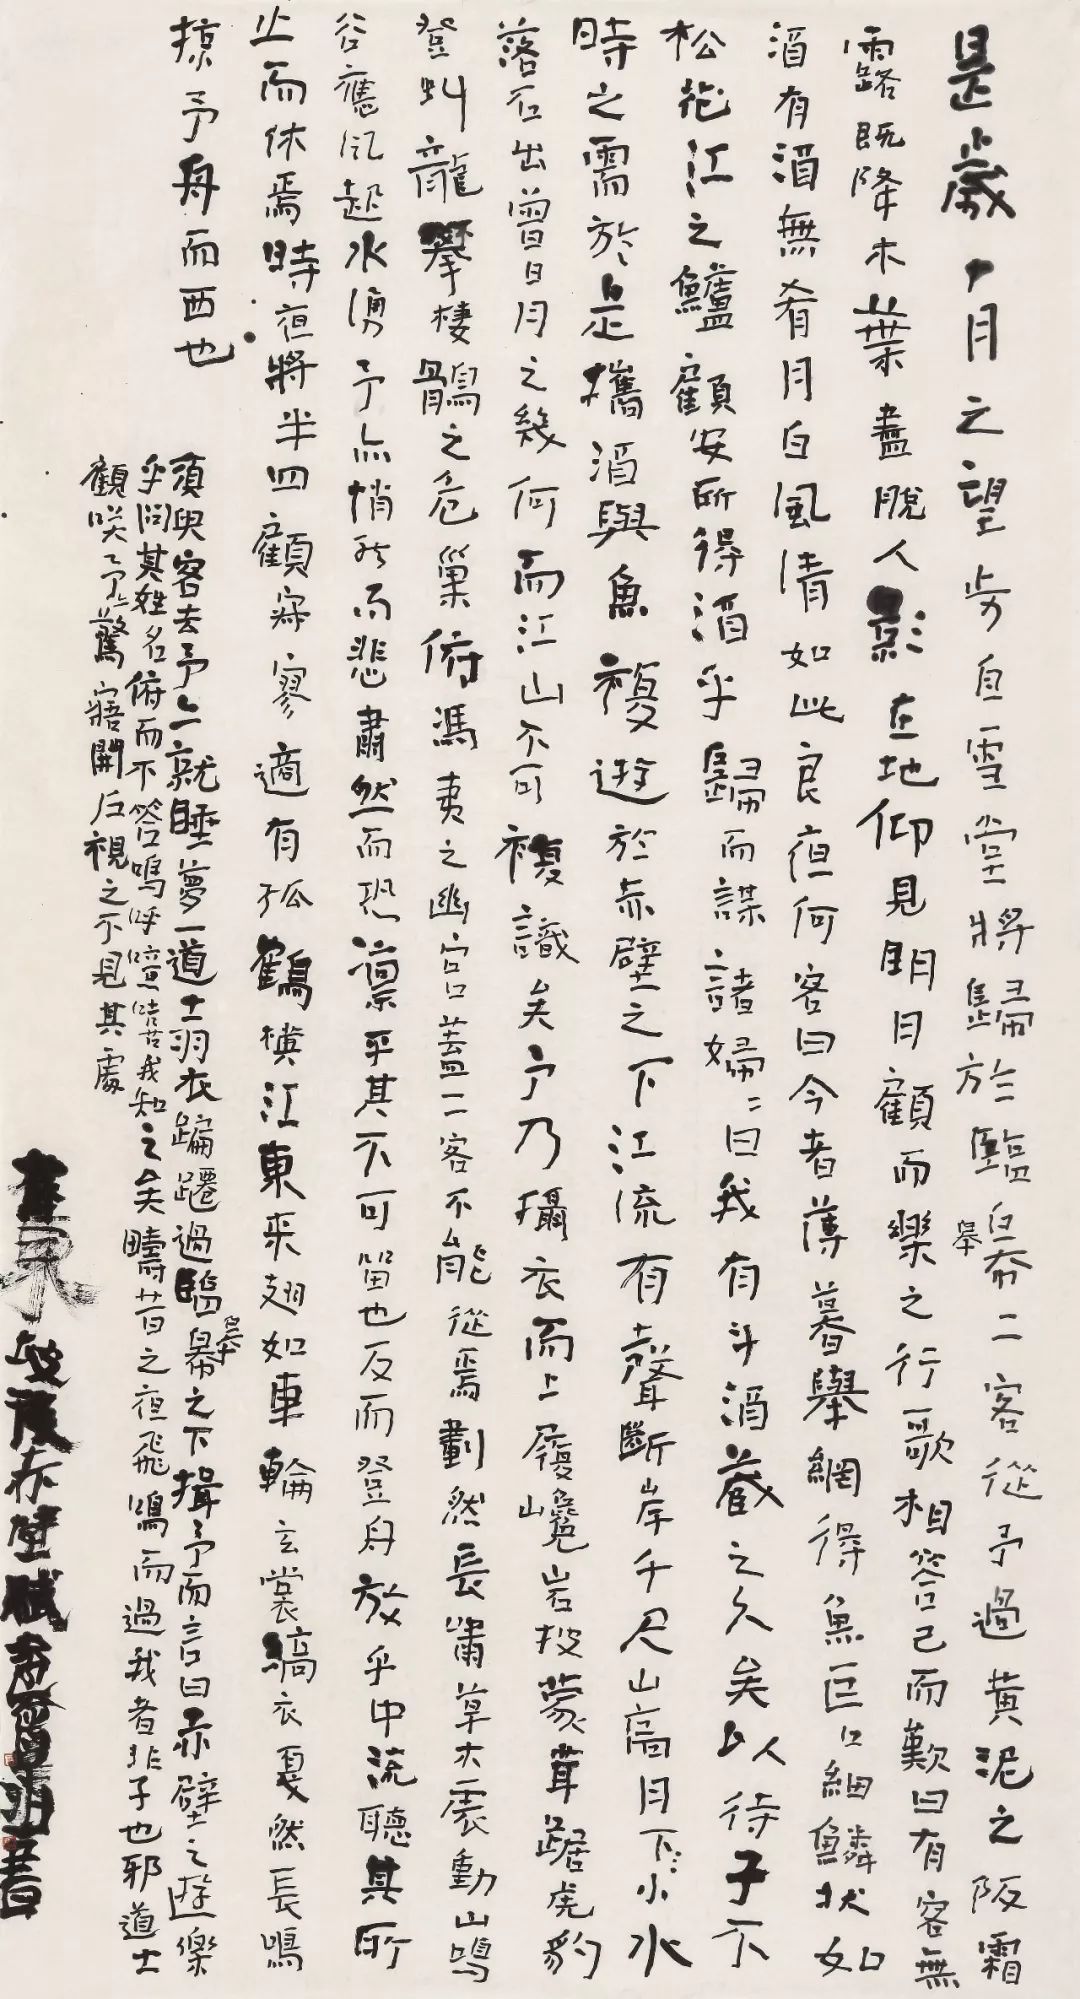 是歲十月之望步自雪堂將歸於臨皋二客從予過黃泥之阪霜
露既降木葉盡脫人影在地仰見明月顧而樂之行歌相答已而歎曰有客無
酒有酒無肴月白風清如此良夜何客曰今者薄暮舉網得魚巨口細鱗狀如
松花江之鱸顧安所得酒乎歸而謀諸婦婦曰我有斗酒藏之久矣以待子不
時之需於是攜酒與魚複遊於赤壁之下江流有聲斷岸千尺山高月小水
落石出曾日月之幾何而江山不可複識矣予乃攝衣而上履巉岩披蒙茸踞虎豹
登虯龍攀棲鶻之危巢俯馮夷之幽宮蓋二客不能從焉劃然長嘯草木震動山鳴
谷應風起水湧予亦悄然而悲肅然而恐凜乎其不可留也反而登舟放乎中流聽其所
止而休焉時夜將半四顧寂寥適有孤鶴橫江東來翅如車輪玄裳縞衣戛然長鳴
掠予舟而西也
須臾客去予亦就睡夢一道士羽衣蹁躚過臨皋之下揖予而言曰赤壁之遊樂
乎問其姓名俯而不答嗚呼噫嘻我知之矣疇昔之夜飛鳴而過我者非子也邪道士
顧笑予驚寤開戶視之不見其處
東坡後赤壁賦